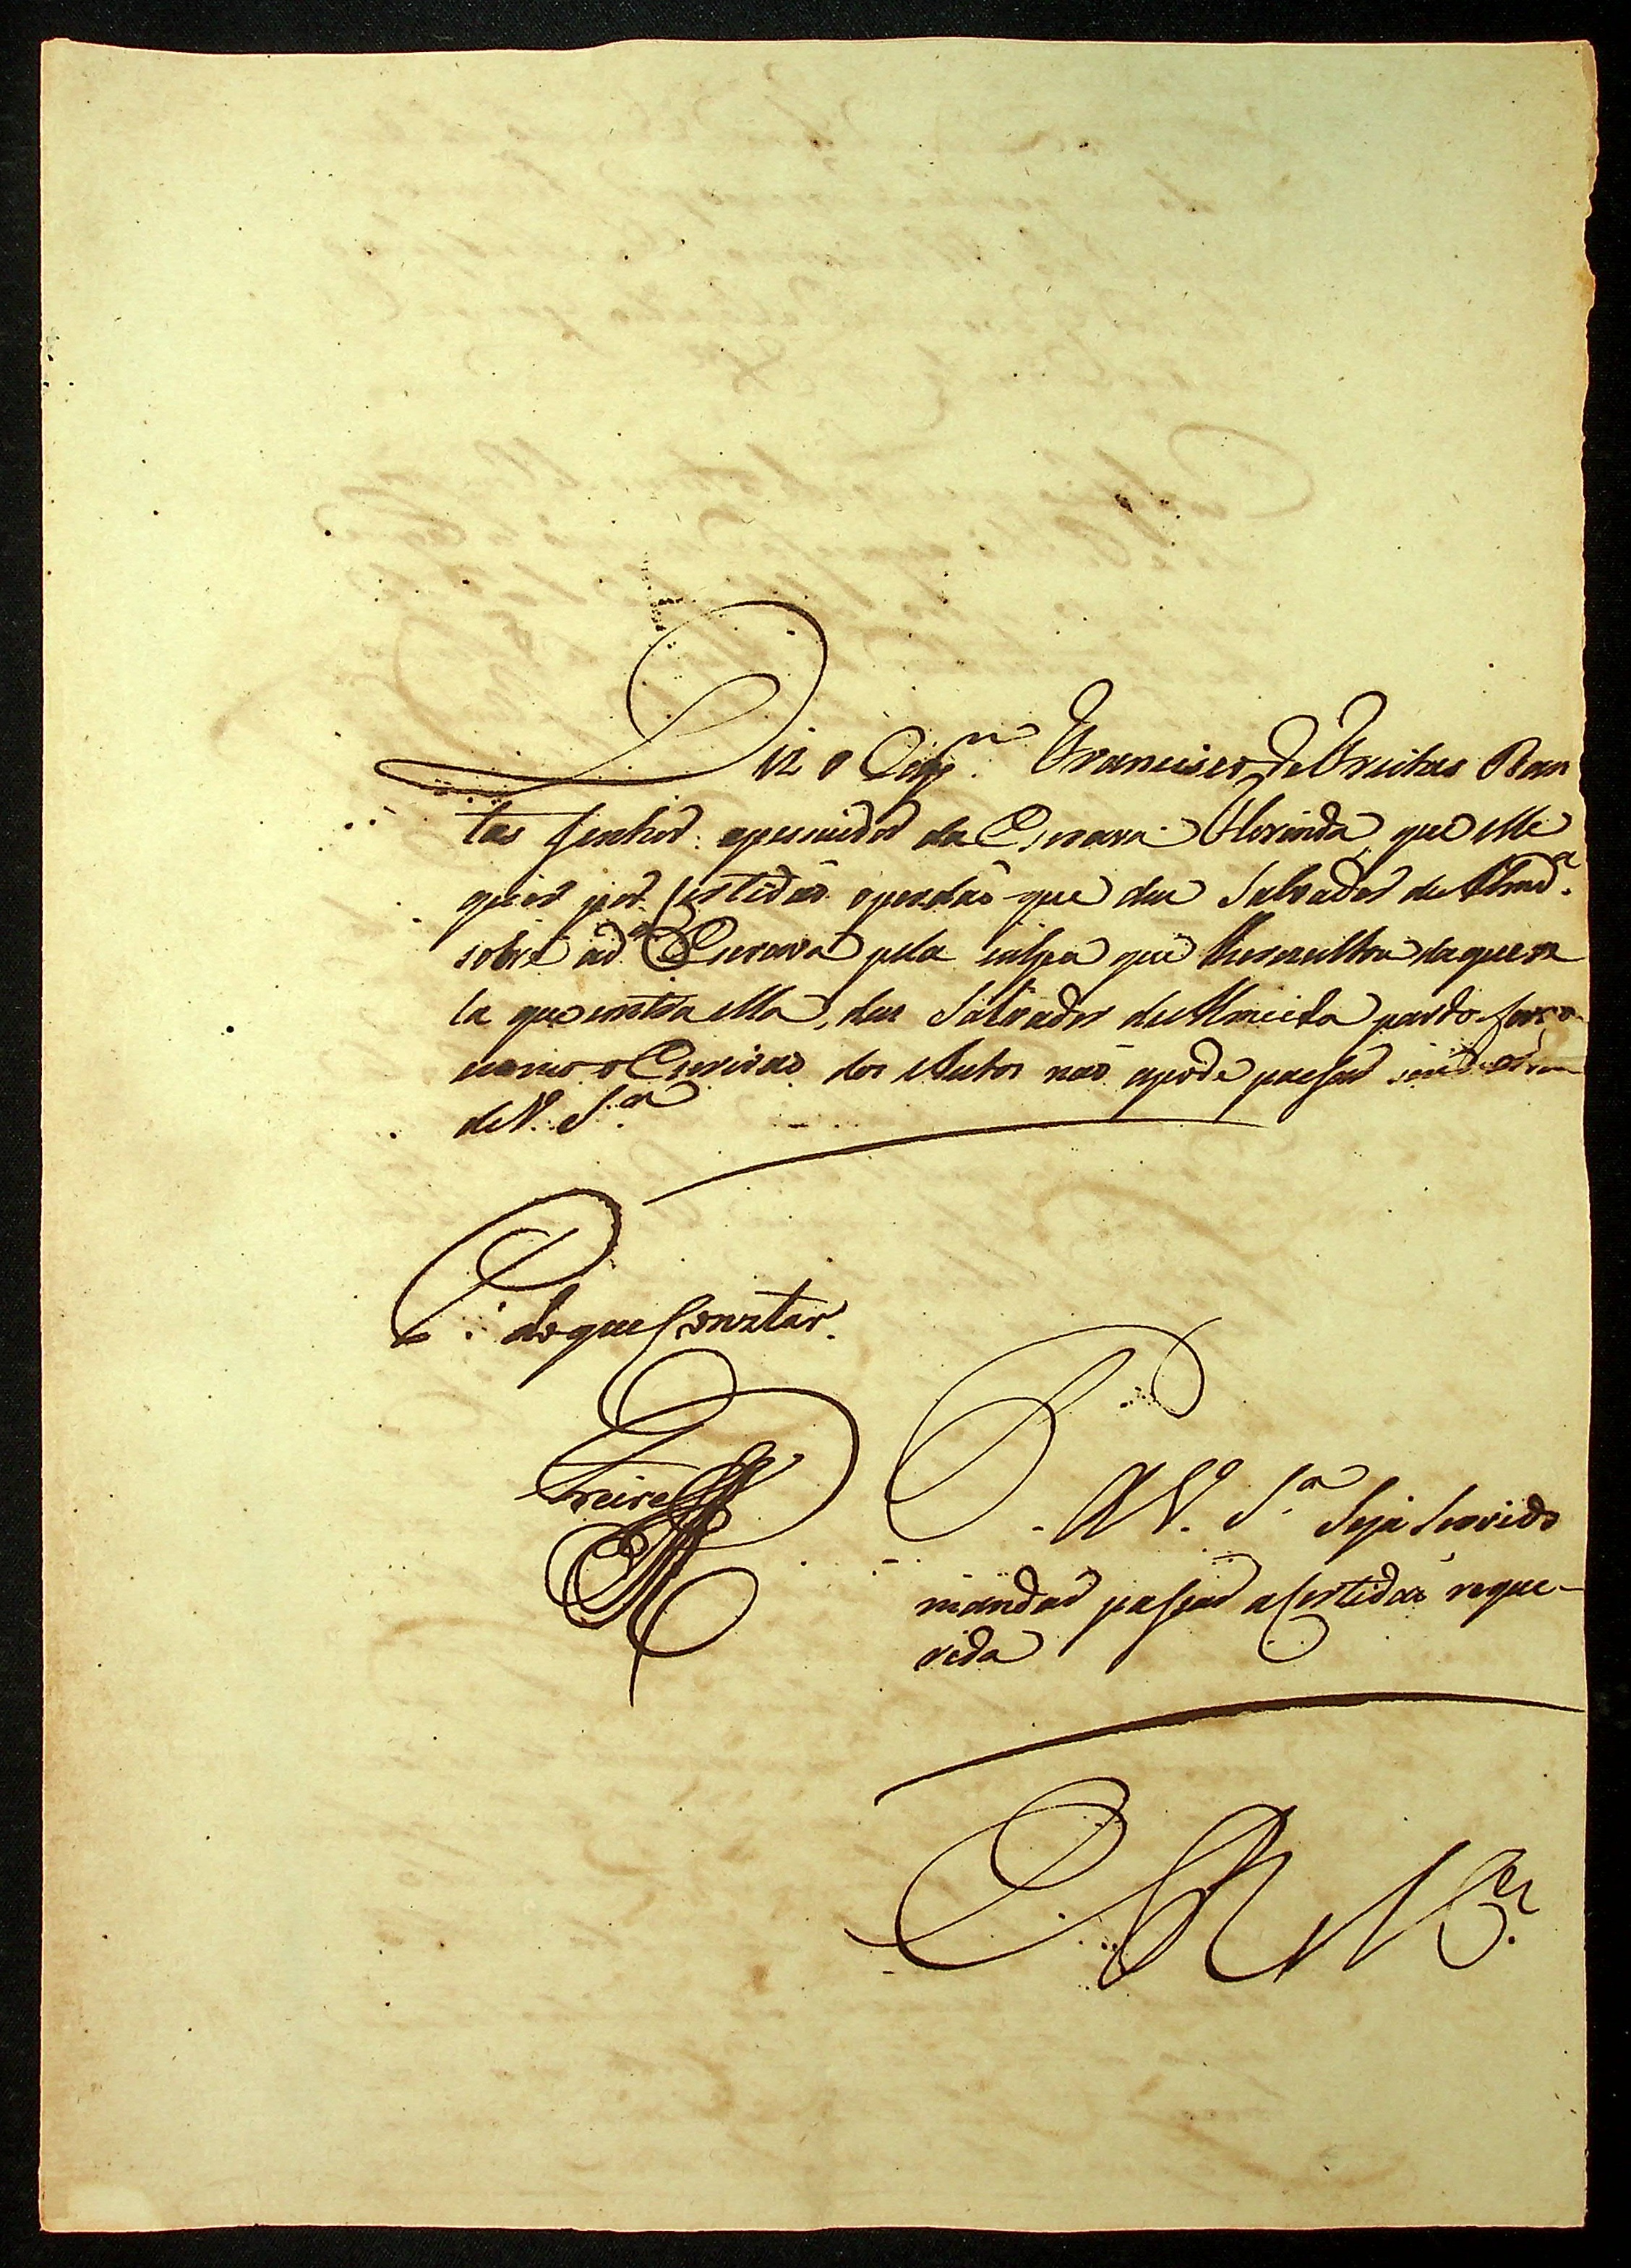 Diz o Cap.m Francisco de Freitas Dan
tas Senhor epesuidor da Escrava Florinda, que elle
quer por Certidaõ operdaõ que deu Salvador de Almd.a
sobre a d.a Escrava pela culpa que lhe resultou da quere
la que contra ella, deu Salvador de Almeida pardo forro
e como o Escrivaõ dos Autos naõ apode pasar sem
de V. S.a
P. do que Constar.
Freire
P. A V. S.a Seja Servido
mandar pasar a Certidaõ reque-
rida
E R M.ce